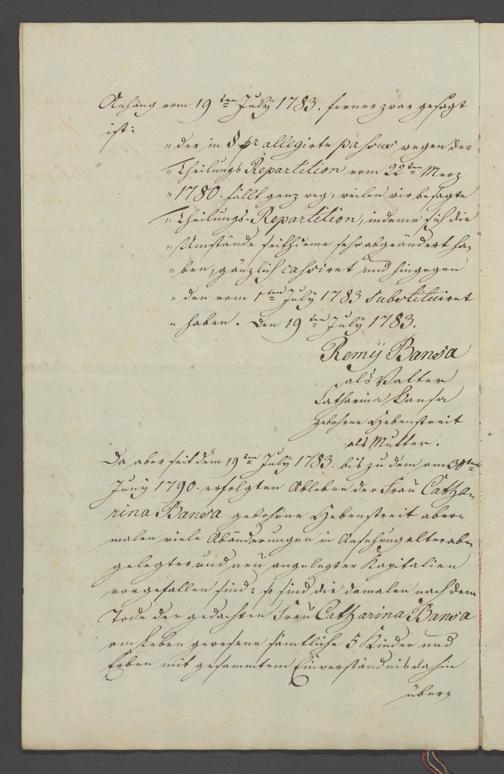 Anhang vom 19ten July 1783. ferner zwar gesagt
ist:
„der in § pr allegirte passus wegen der
„Theilungs Repartition vom 22ten Merz
„1780. fällt ganz weg, weilen wir besagte
„Theilungs-Repartition, indeme sich die
„Umstände seithdeme sehr abgeändert ha-
„ben, gänzlich cassiret und hingegen
„den vom 1ten July 1783 substituiret
„haben. Den 19ten July 1783.
Remÿ Bansa
als Vatter
Catharina Bansa
gebohrne Hebenstreit
als Mutter.
Da aber seit dem 19ten July 1783. bis zu dem am
Juny 1790. erfolgten Ableben der Frau Catha-
rina Bansa gebohrne Hebenstreit aber-
malen viele Abänderungen in Ansehung alter abe
gelegter und neu angelegter Kapitalien
vorgefallen sind: so sind die damalen nach dem
Tode der gedachten Frau Catharina Bansa
am Leben gewesene sämtliche 5 Kinder und
Erben mit gesammtem Einverständnis dahin
über-